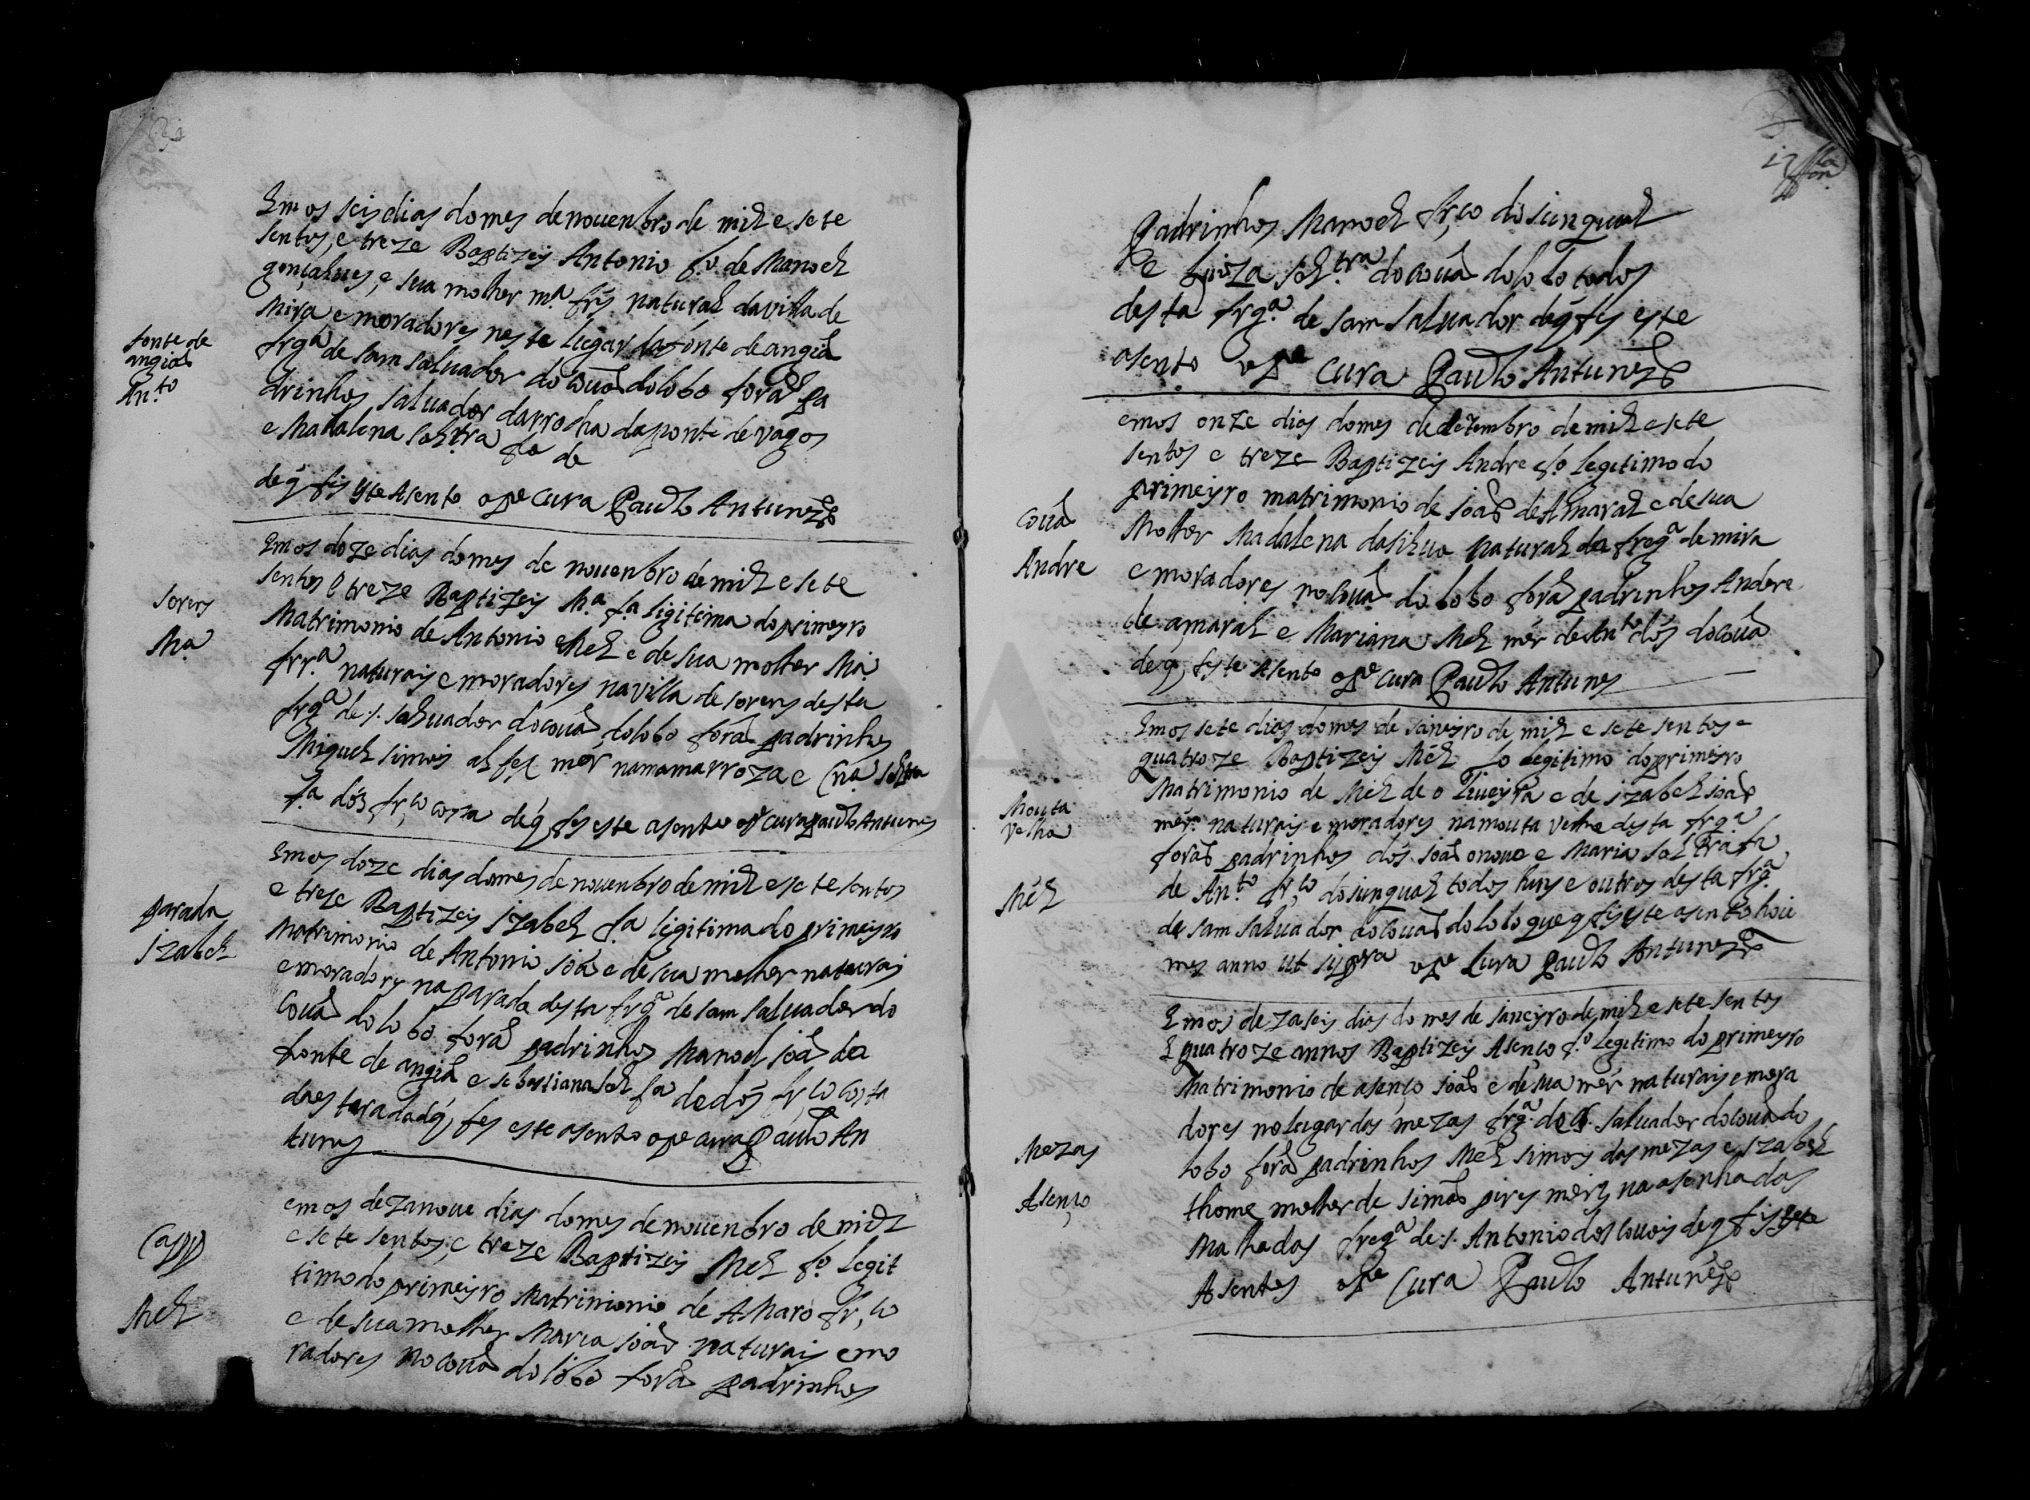 fonte de
angiaõ
An.to
Em os seis dias do mes de nouenbro de mil e sete
sentos, e treze Baptizeij Antonio f.o de Manoel
gonçalues, e sua molher m.a frž natural da villa de
Mira e moradores neste lugar da fonte de angiaõ
frg.a de sam saluador do couaõ do lobo foraõ pa
drinhos saluador da rocha da ponte de vagos
e Madalena soltra f.a de
de q̃ fis este Asento o p.e cura Paulo Antunes
sorens
M.a
Em os doze dias do mes de nouenbro de mil e sete
sentos e treze Baptizeij M.a f.a ligitima do primeyro
Matrimonio de Antonio Mel e de sua molher M.a
frr.a naturais e moradores na villa de sorens desta
frg.a de s. saluador do couaõ do lobo foraõ padrinhos
Miguel simois al fex mor na mamarroza e Cn.a soltra
f.a dós fr,co costa de q̃ fes este asento o p.e cura paulo Antunes
parada
Izabel
Em os doze dias do mes de nouenbro de mil e sete sentos
e treze Baptizeij Izabel f.a legitima do primeiro
Matrimonio de Antonio joaõ e de sua molher naturais
e moradores na parada desta frg.a de sam saluador do
Couaõ do lobo foraõ padrinhos Manoel joaõ da
fonte de angiaõ e sebastiana sol f.a de dós fr co costa
da es tarada de q̃ fes este asento o p.e cura Paulo An
tunes
Capp
Mel
em os dezanoue dias do mes de nouenbro de mil
e sete sentos, e treze Baptizeij Mel f.o legit
timo do primeiro Matrimonio de Amaro fr,co
e de sua molher Maria joaõ naturais e mo
radores no couaõ do lobo foraõ padrinhos
17
padrinhos Manoel fr,co do junqual
e Luiza sol.tra do couaõ do lobo todos
desta frg.a de sam saluador de q̃ fis este
asento o p.e cura Paulo Antunes
Couaõ
Andre
em os onze dias do mes de dezembro de mil e sete
sentos e treze Baptizeij Andre f.o legitimo do
primeyro matrimonio de joaõ de Amaral e de sua
Molher Madalena da silua natural da freg.a de mira
e moradores no couaõ do lobo foraõ padrinhos Andere
de amaral e Mariana Mel mer de An.to dós do couaõ
de q̃, fes te Asento o p.e cura Paulo Antunes
Mouta
velha
Mel
Em os sete dias do mes de janeiro de mil e sete sentos e
quatroze Baptizeij Mel f.o legitimo do primeyro
Matrimonio de Mel de oliueyra e de izabel joaõ
mer. naturais e moradores na mouta velha desta frg.a
foraõ padrinhos dós joaõ o noue e Maria soltra f.a
de An.to fr,co do junqual todos huns e outros desta frg.a
de sam saluador do couaõ do lobo que q̃ fis este asento hoie
mes anno ut supra o p.e Cura Paulo Antunes
Mezas
Asenço
Em os dezaseis dias do mes de janeyro de mil e sete sentos
E quatroze annos Baptizeij Asenço f.o legitimo do primeyro
Matrimonio de asenço joaõ e de sua mer naturais e mora
dores no lugar das mezas frg.a de s. saluador do couaõ do
lobo foraõ padrinhos Mel simois das mezas e izabel
thome molher de simaõ pires mer na asenha das
Malhadas freg.a de s. Antonio dos couois de q̃ fis este
Asentos o p.e Cura Paulo Antunes